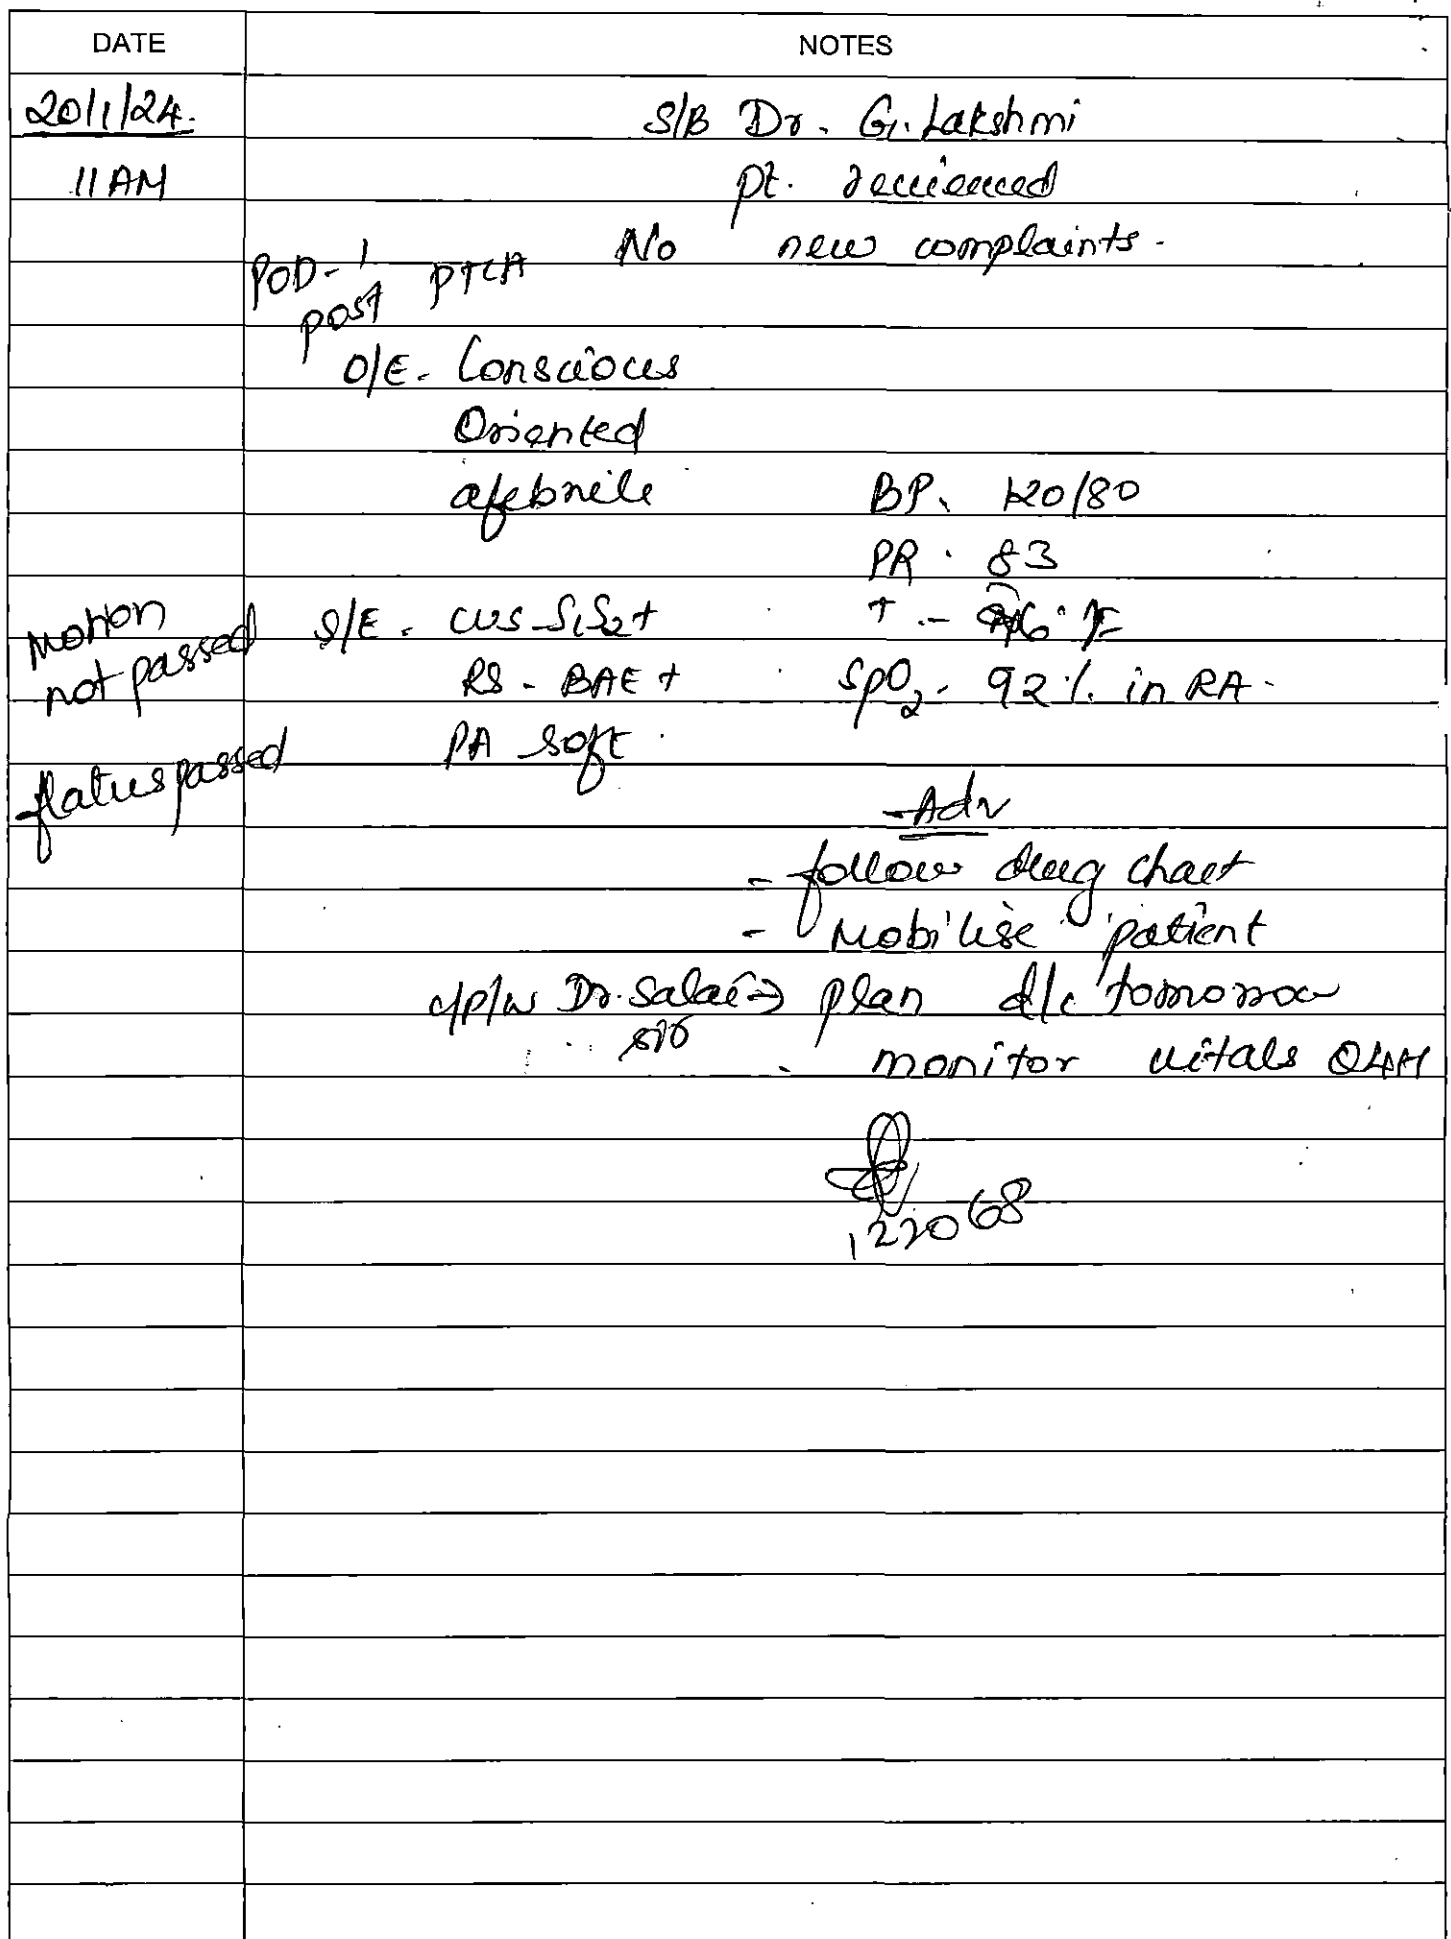 DATE NOTES
20/1/24. S/B Dr. G. Lakshmi
11 AM pt. reviewed
No new complaints.
POD-1
post PTCA
O/E. Conscious
Oriented
afebrile BP. 120/80
PR. 83
Motion S/E. CVS-S1S2+ T.-
not passed RS - BAE + SpO2- 92% in RA.
flatus passed PA soft.
Adv
- follow drug chart
- Mobilise patient
c/p/w Dr. Salai → plan d/c tomorrow
sir
- monitor vitals Q4H
122068